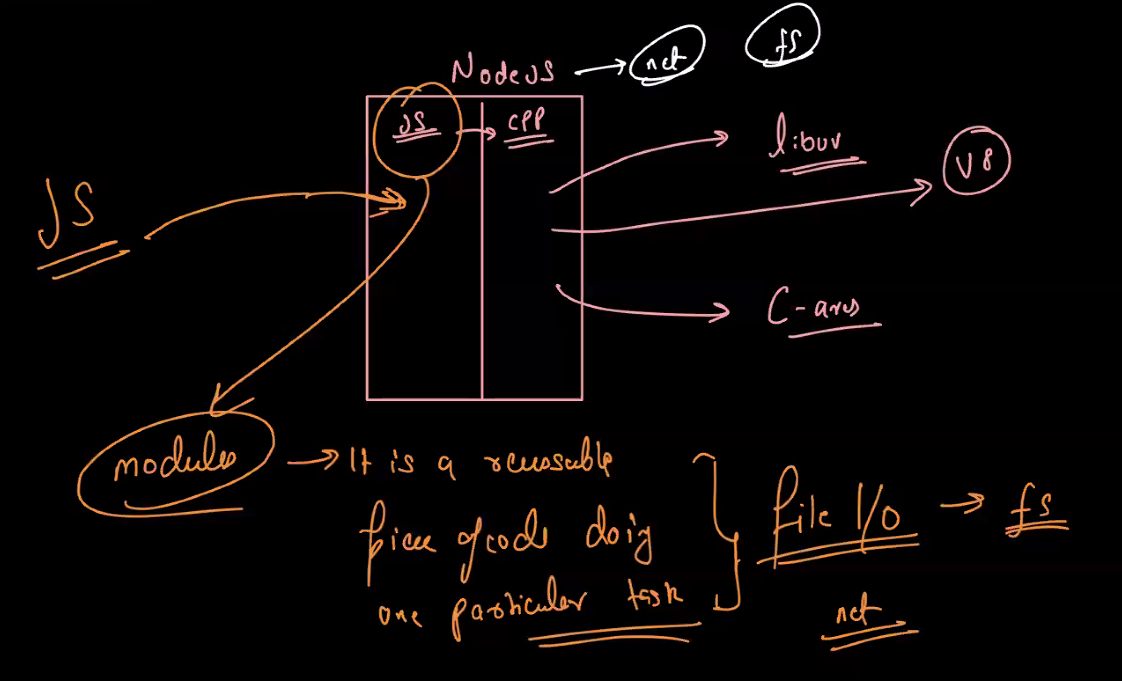 net
fs
NodeJS
JS
CPP
libuv
V8
JS
C-ares
modules
It is a reusable
piece of code doig
one particular task
file I/O
fs
net